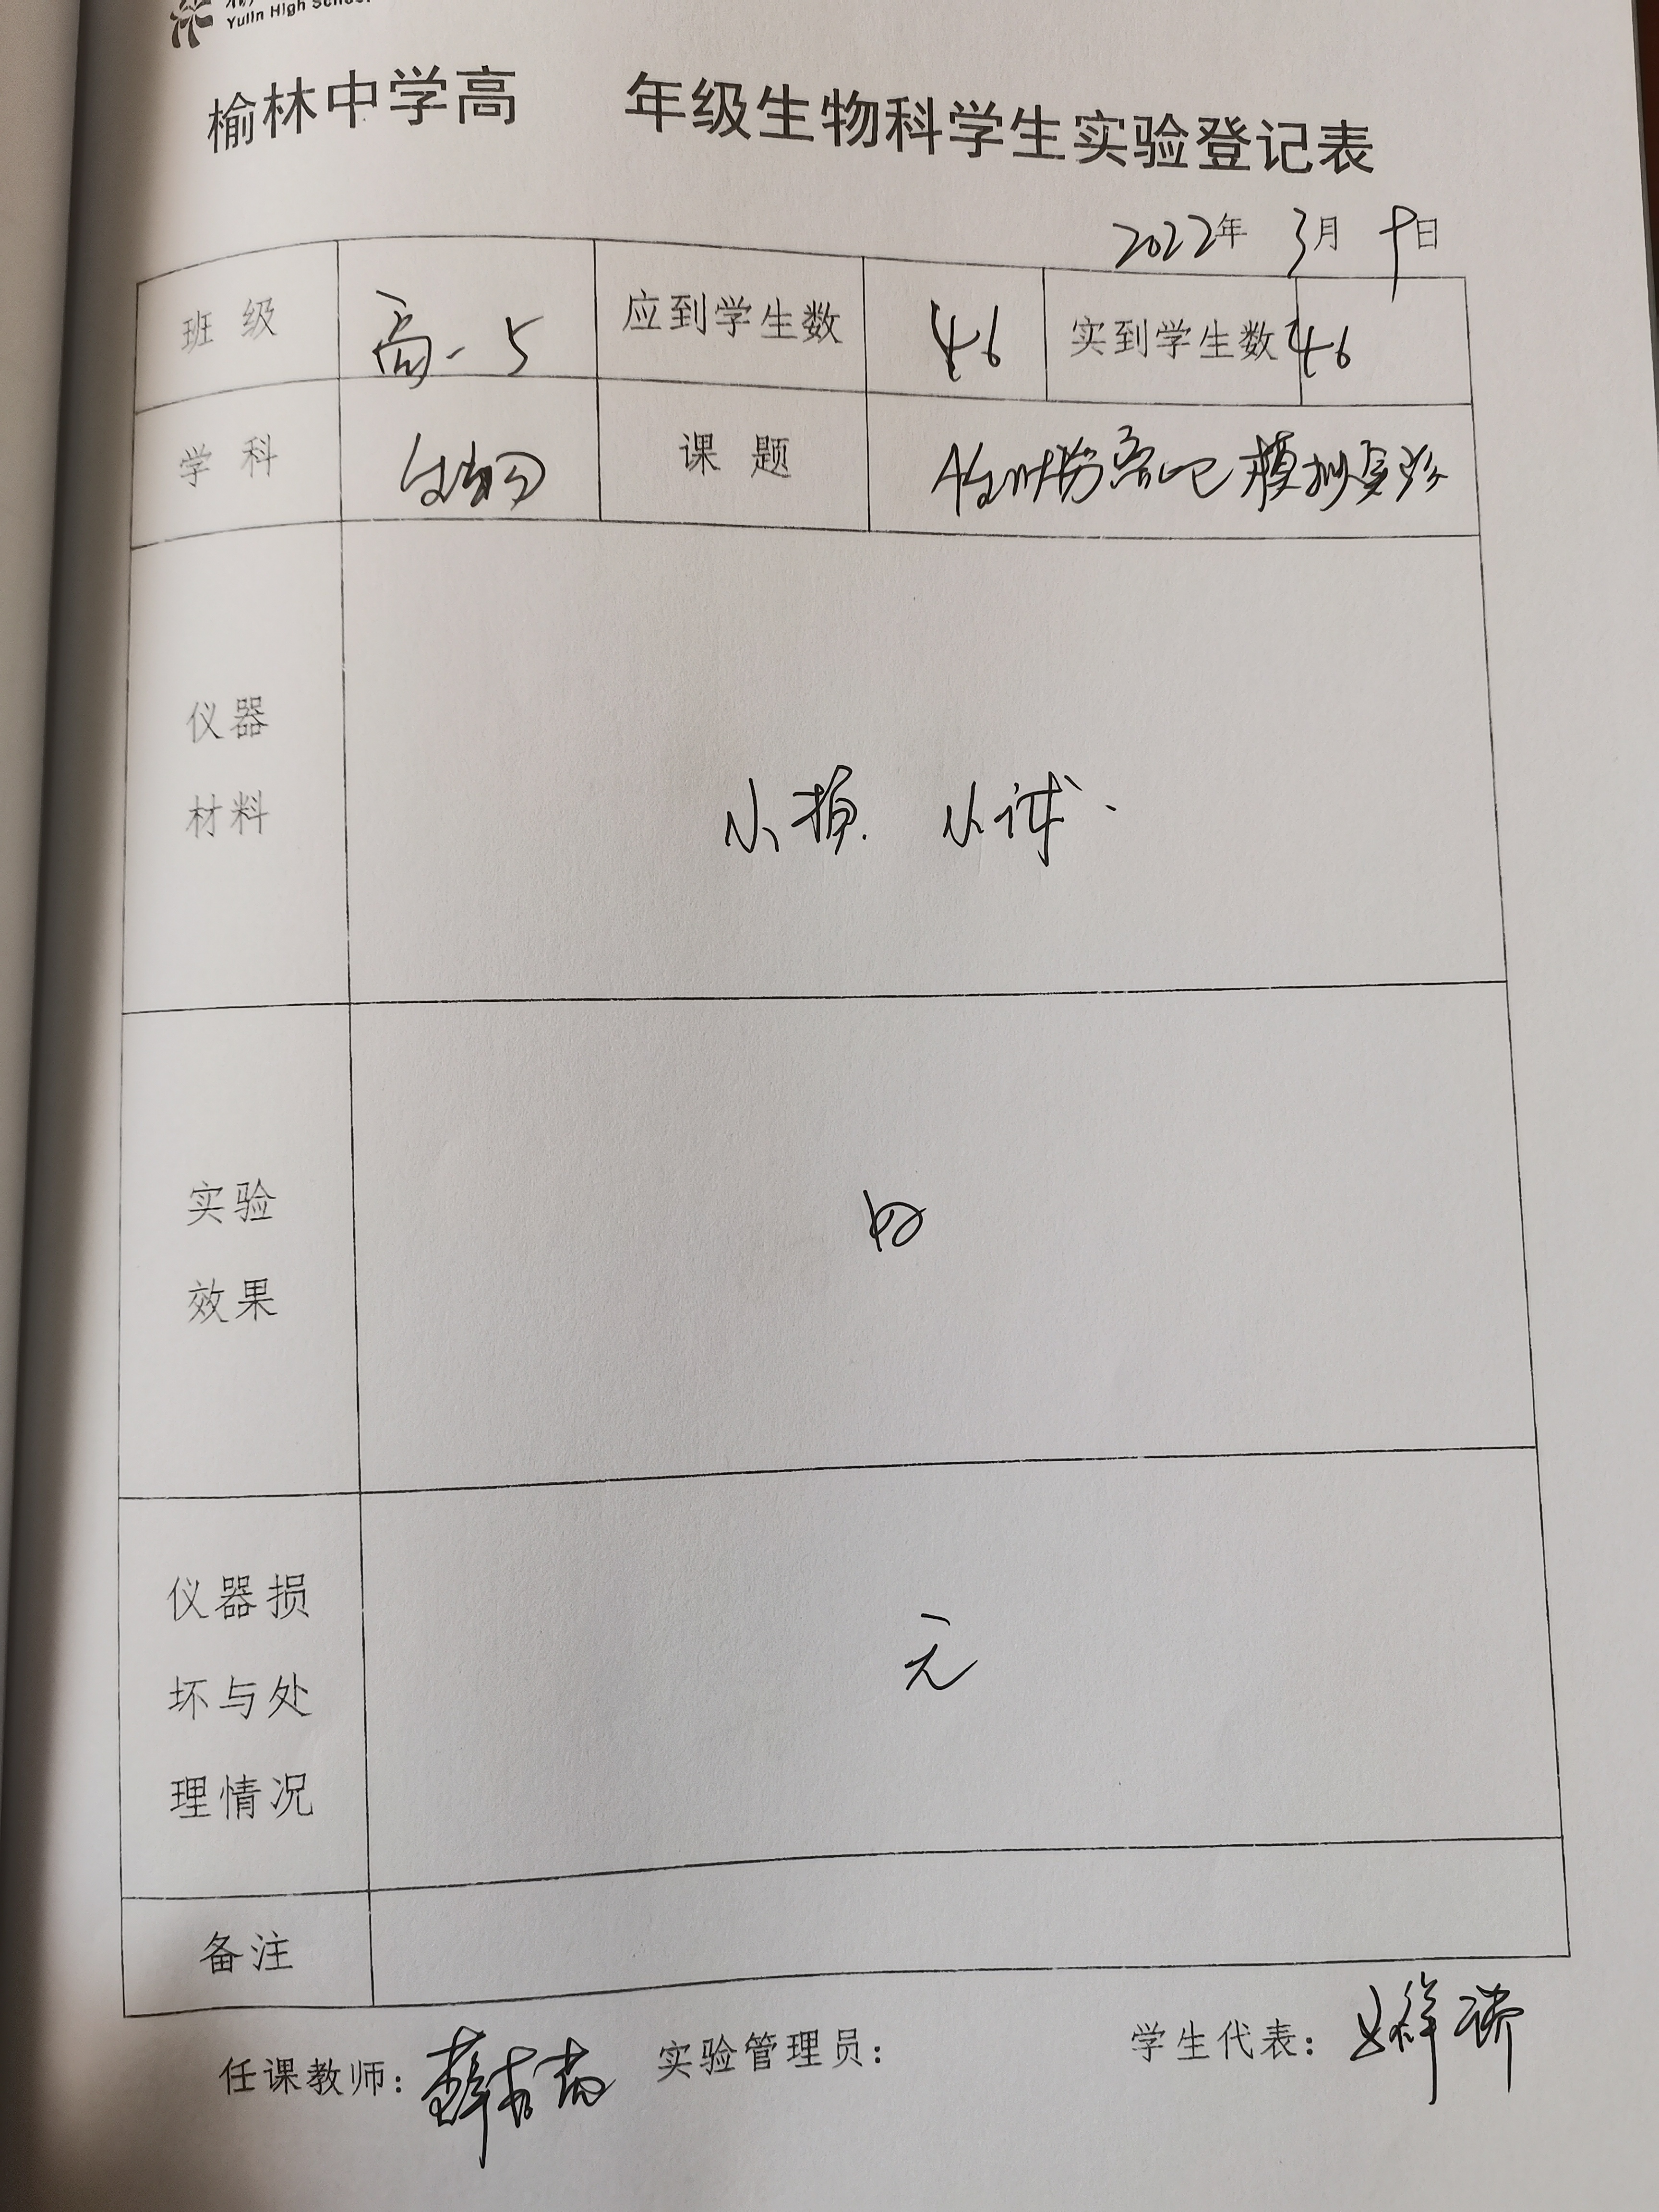 Yulin High School
榆林中学高 年级生物科学生实验登记表
2022年 3月 9日
班 级 高一5 应到学生数 46 实到学生数 46
学 科 生物 课 题 模拟实验
仪器
材料
小
实验
效果
仪器损
坏与处
理情况
无
备注
任课教师: 实验管理员: 学生代表: